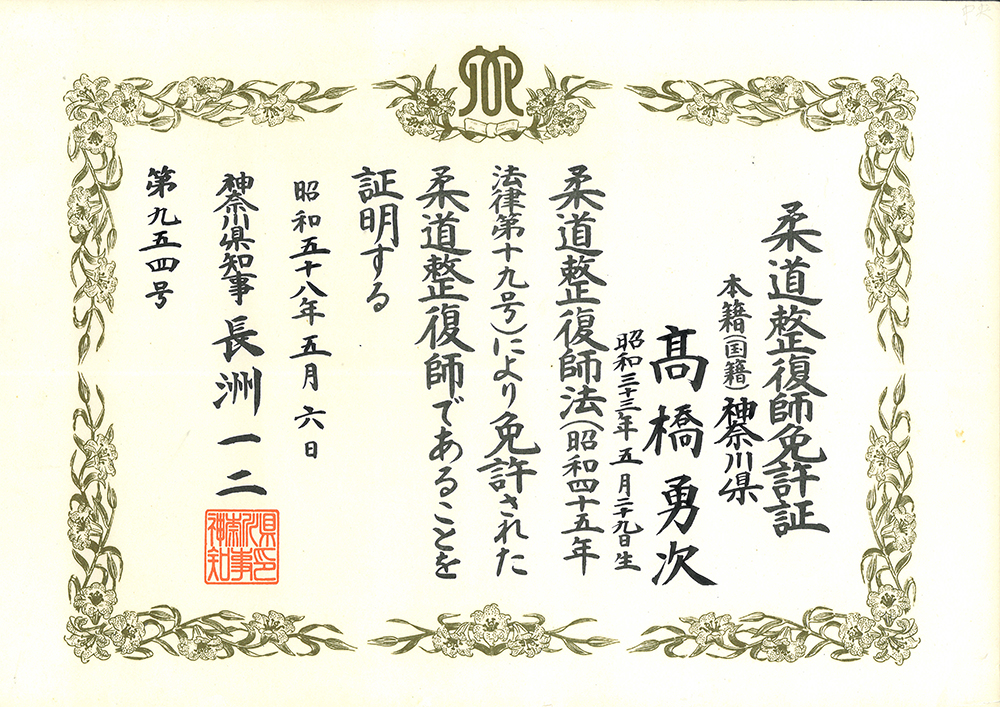 柔道整復師免許証
本籍(国籍)神奈川県
髙橋勇次
昭和三十三年五月二十九日生
柔道整復師法(昭和四十五年
法律第十九号)により免許された
柔道整復師であることを
証明する
昭和五十八年五月六日
神奈川県知事 長洲一二
神奈川県知事印
第九五四号